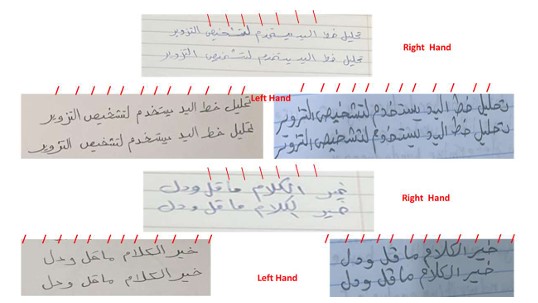 تحليل خط اليد يستخدم لتشخيص التزوير
تحليل خط اليد يستخدم لتشخيص التزوير
Right Hand
Left Hand
تحليل خط اليد يستخدم لتشخيص التزوير
تحليل خط اليد يستخدم لتشخيص التزوير
تحليل خط اليد يستخدم لتشخيص التزوير
تحليل خط اليد يستخدم لتشخيص التزوير
خير الكلام ما قل ودل
خير الكلام ما قل ودل
Right Hand
خير الكلام ما قل ودل
خير الكلام ما قل ودل
خير الكلام ما قل ودل
خير الكلام ما قل ودل
Left Hand